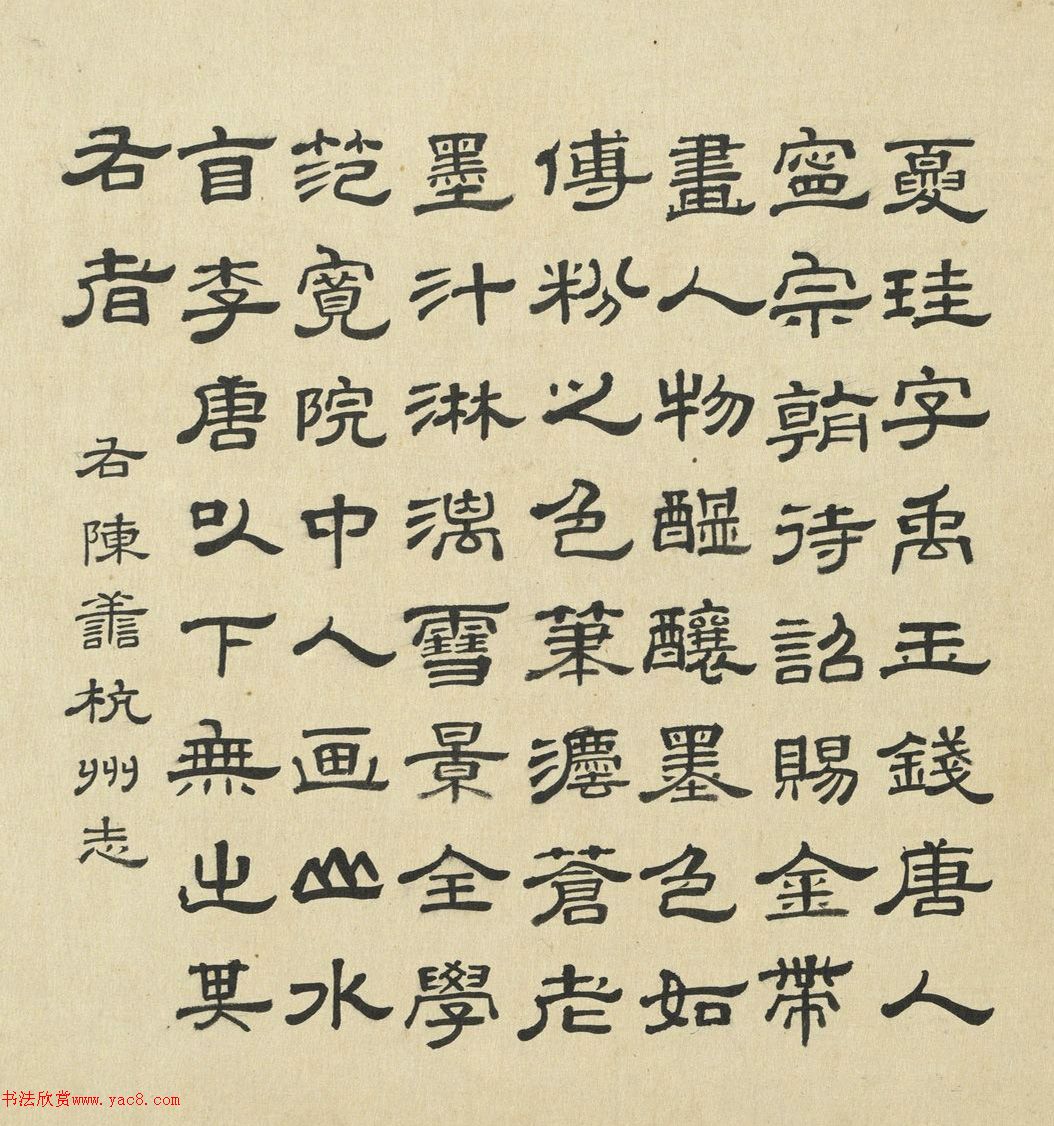 夏珪字禹玉錢唐人
寧宗朝待詔賜金帶
畫人物醞釀墨色如
傅粉之色筆灋蒼老
墨汁淋漓雪景全學
范寬院中人画山水
自李唐以下無出其
右者
右陳善杭州志
书法欣赏www.yac8.com